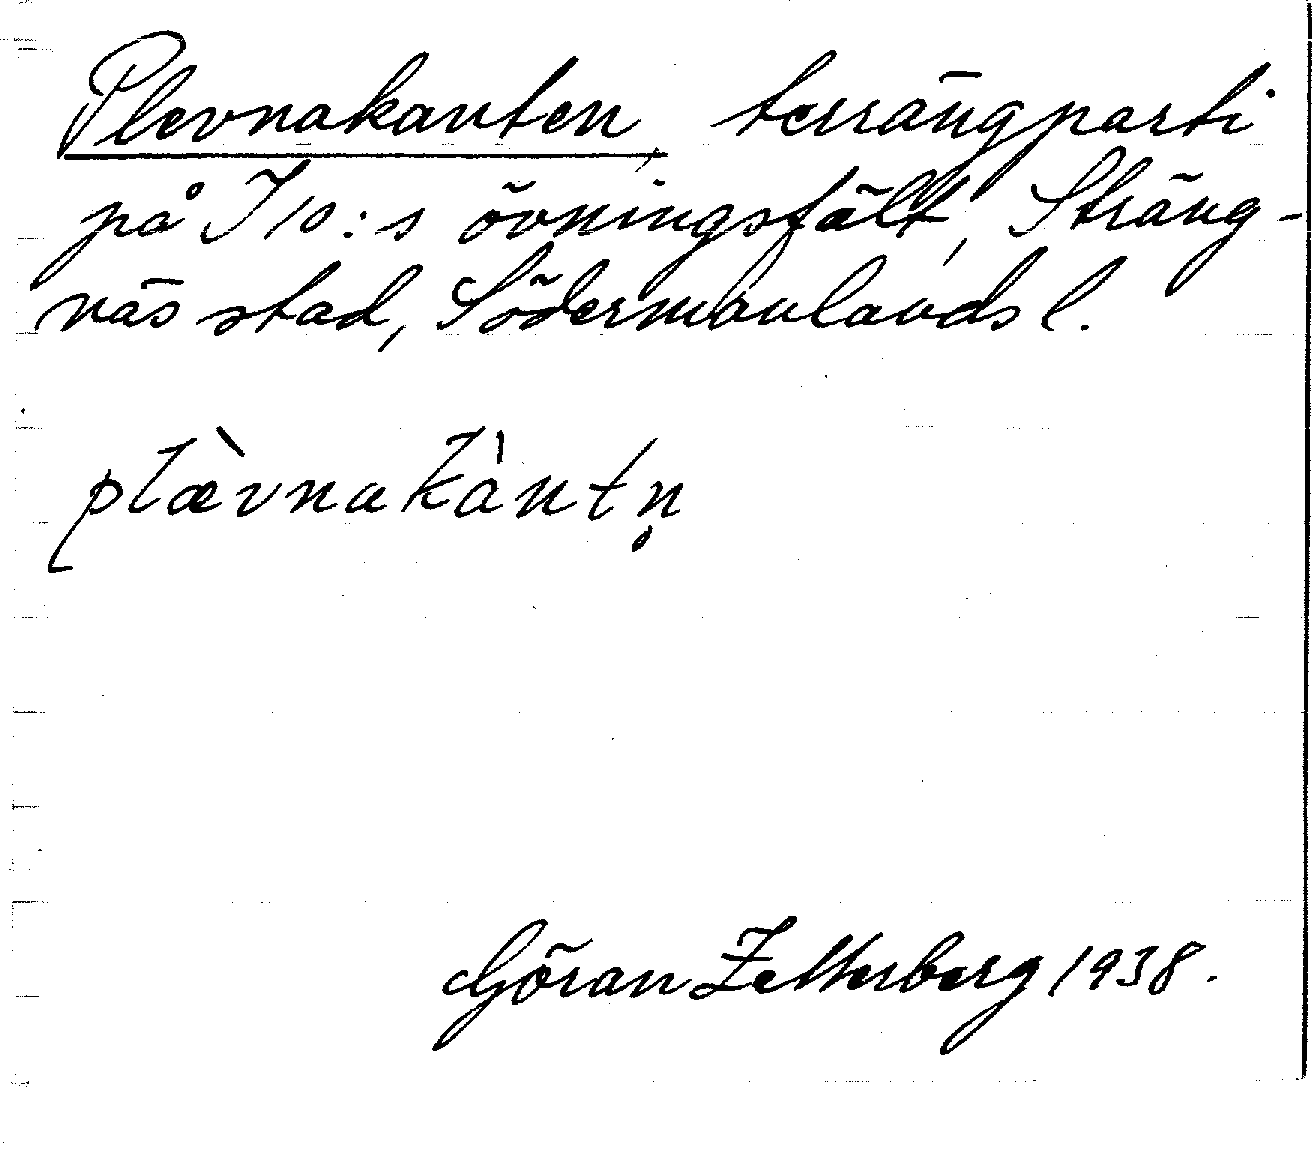 Plevnakanten, terrängparti
på I 10:s övningsfält, Sträng-
näs stad, Södermanlands l.
plæ̀vnakàntn̥
Göran Zetterberg 1938.